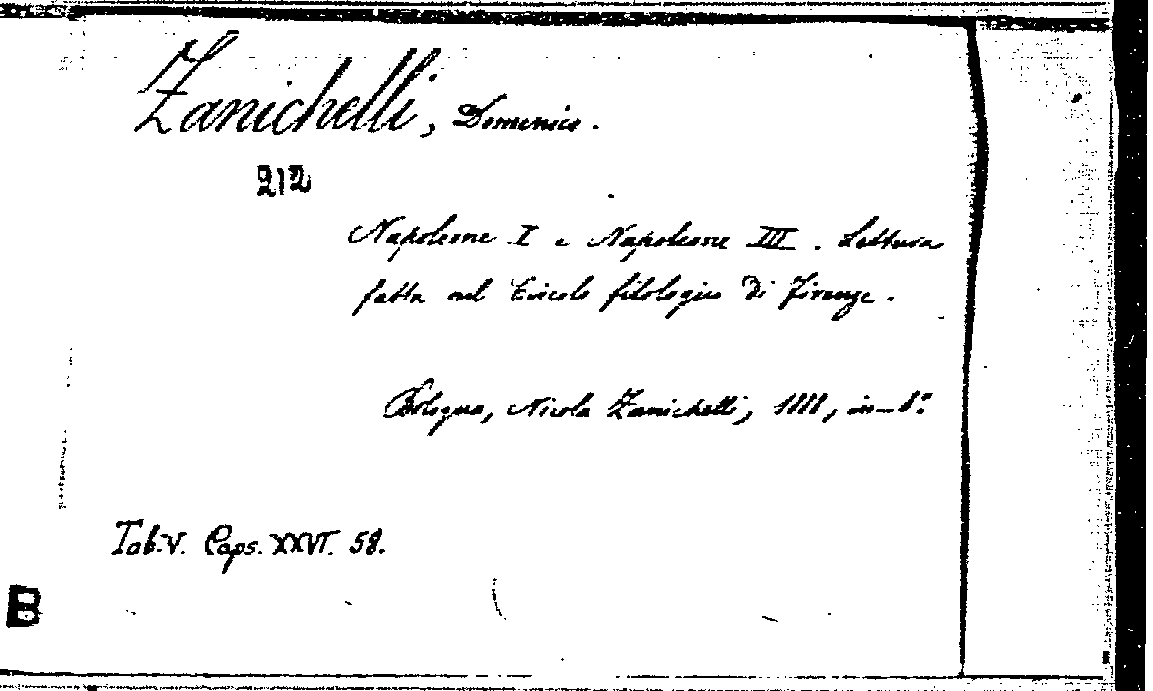 Zanichelli, Domenico.
212
Napoleone I e Napoleone III. Lettura
fatta nel Circolo filologico di Firenze.
Bologna, Nicola Zanichelli, 1888, in-8°.
Tab. V. Caps. XXVI. 58.
B